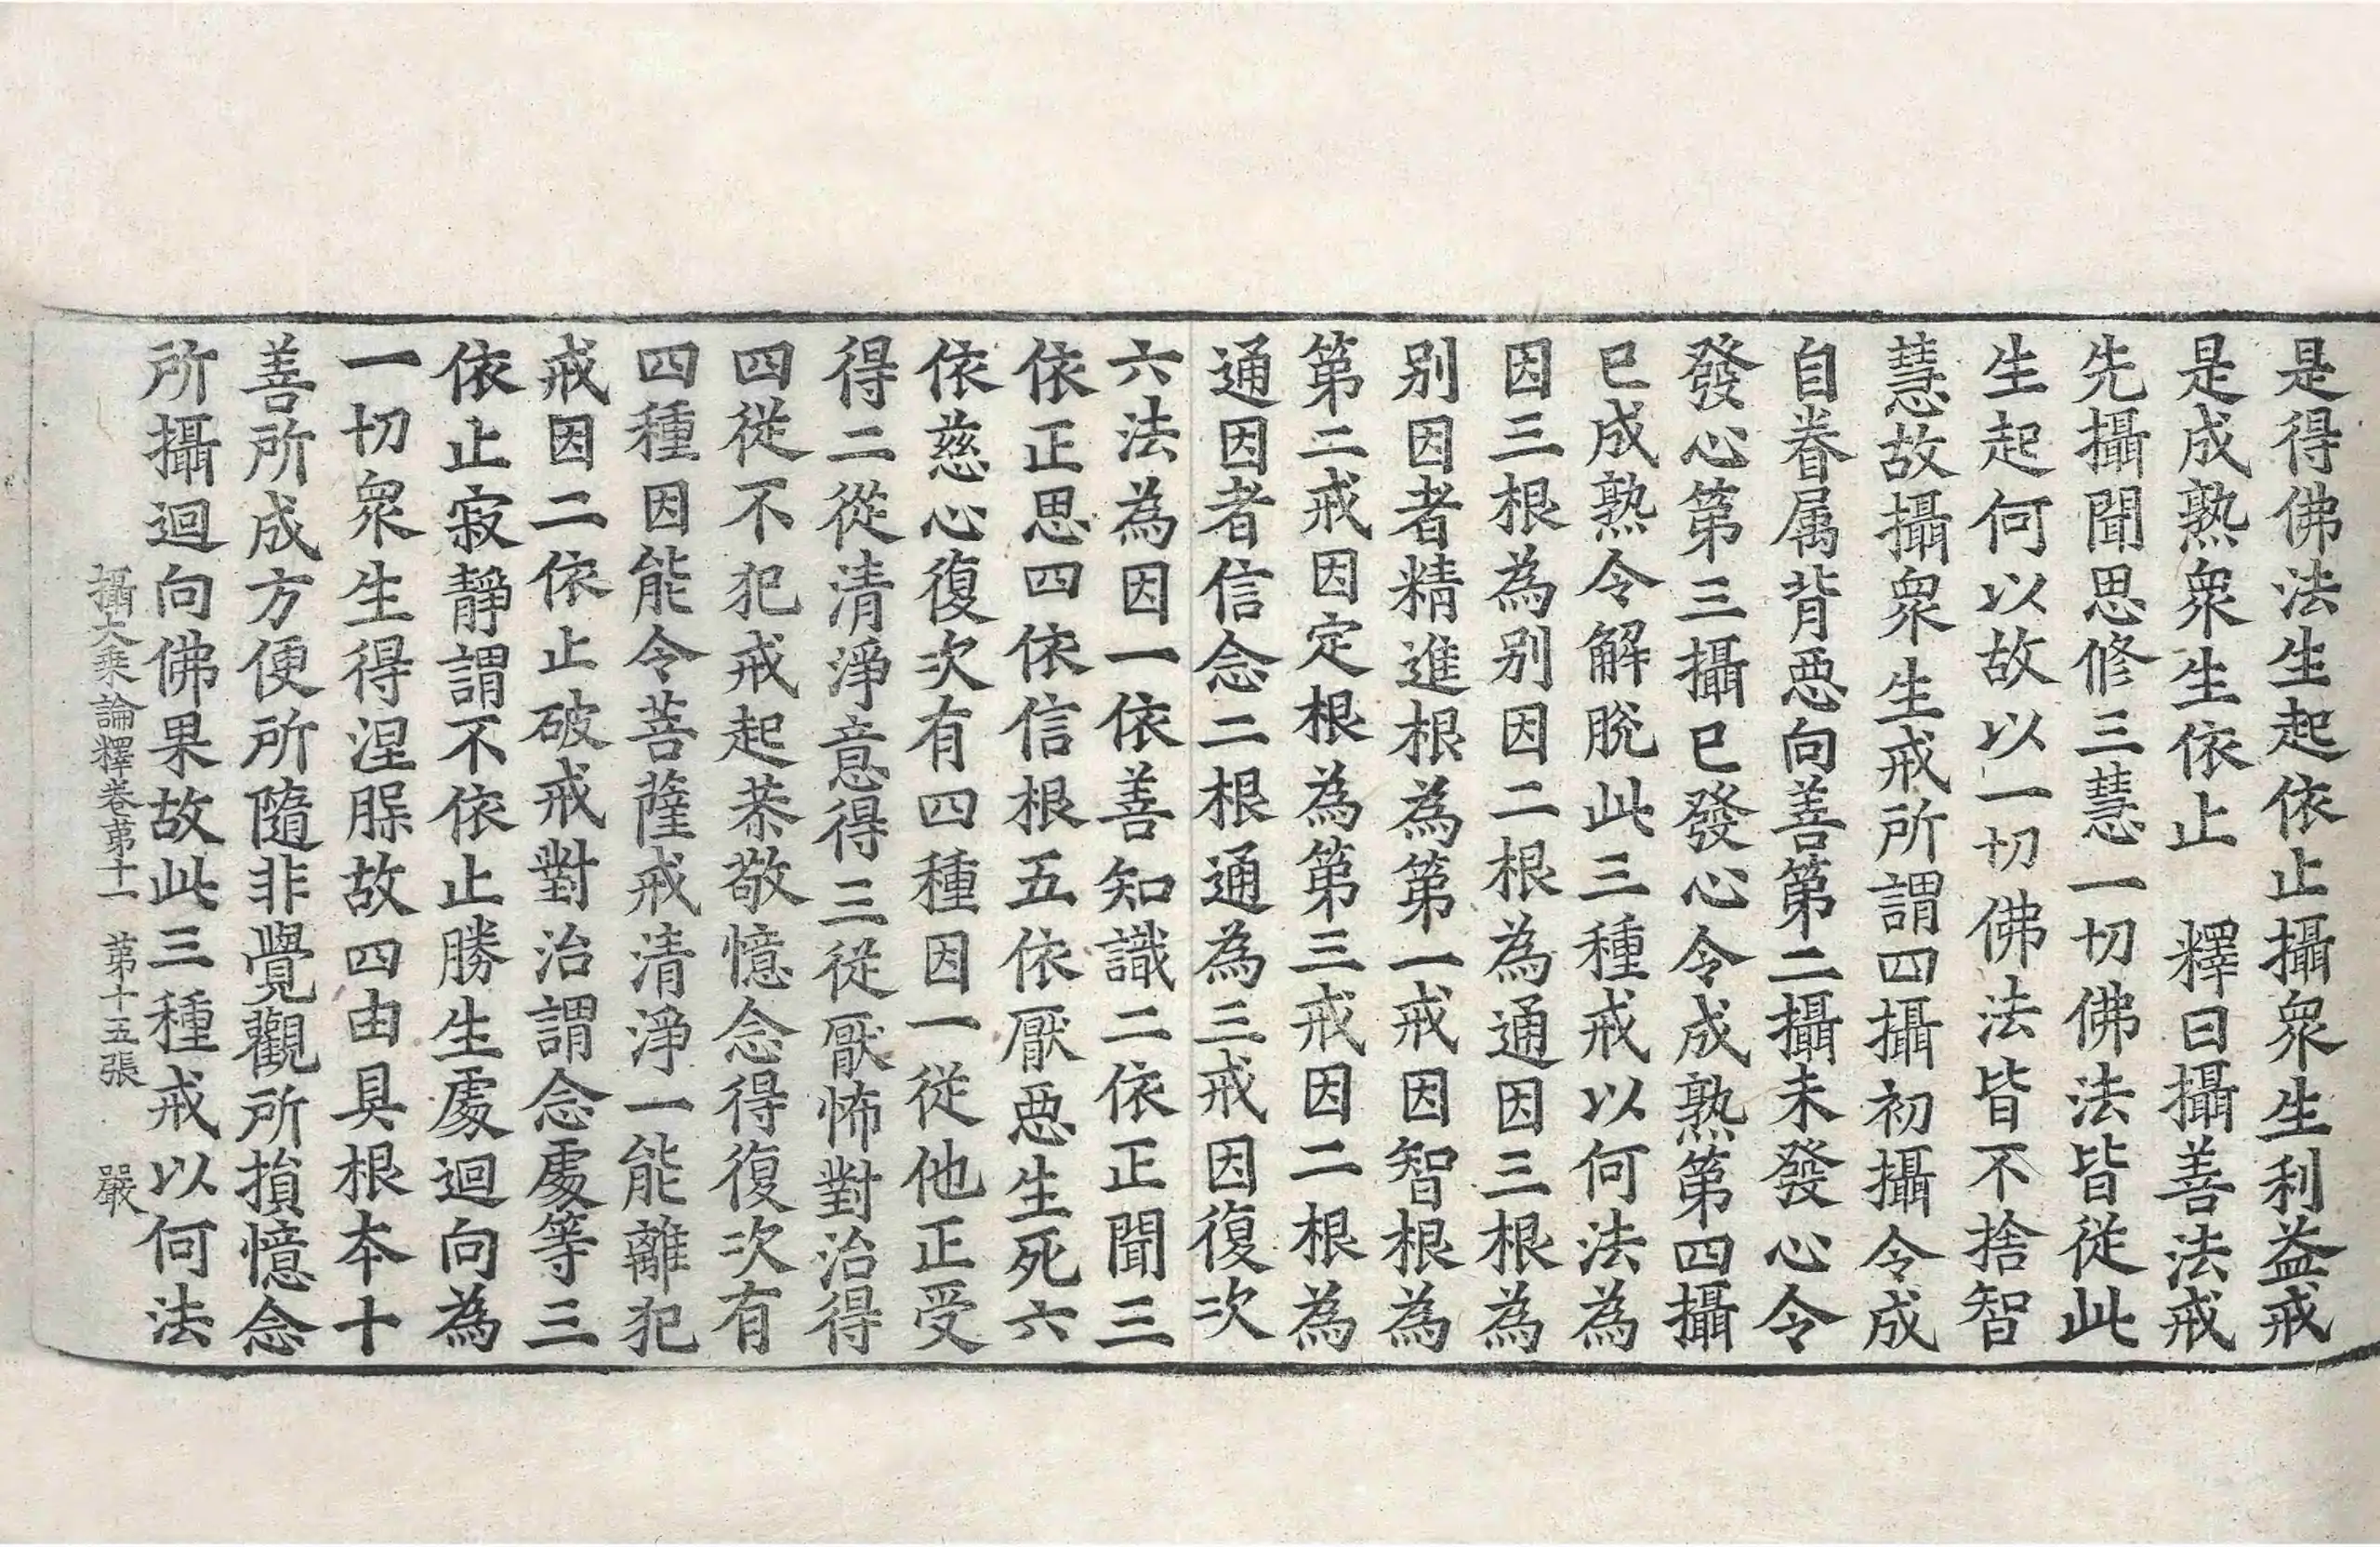 是得佛法生起依止攝衆生利益戒
是成熟衆生依止　釋曰攝善法戒
先攝聞思修三慧一切佛法皆從此
生起何以故以一切佛法皆不捨智
慧故攝衆生戒所謂四攝初攝令成
自眷属背惡向善第二攝未發心令
發心第三攝已發心令成熟第四攝
已成熟令解脫此三種戒以何法為
因三根為別因二根為通因三根為
別因者精進根為第一戒因智根為
第二戒因定根為第三戒因二根為
通因者信念二根通為三戒因復次
六法為因一依善知識二依正聞三
依正思四依信根五依厭惡生死六
依慈心復次有四種因一從他正受
得二從清淨意得三從厭怖對治得
四從不犯戒起恭敬憶念得復次有
四種因能令菩薩戒清淨一能離犯
戒因二依止破戒對治謂念處等三
依止寂靜謂不依止勝生處迴向為
一切衆生得涅槃故四由具根本十
善所成方便所隨非覺觀所損憶念
所攝迴向佛果故此三種戒以何法
攝大乘論釋卷第十一　第十五張　嚴